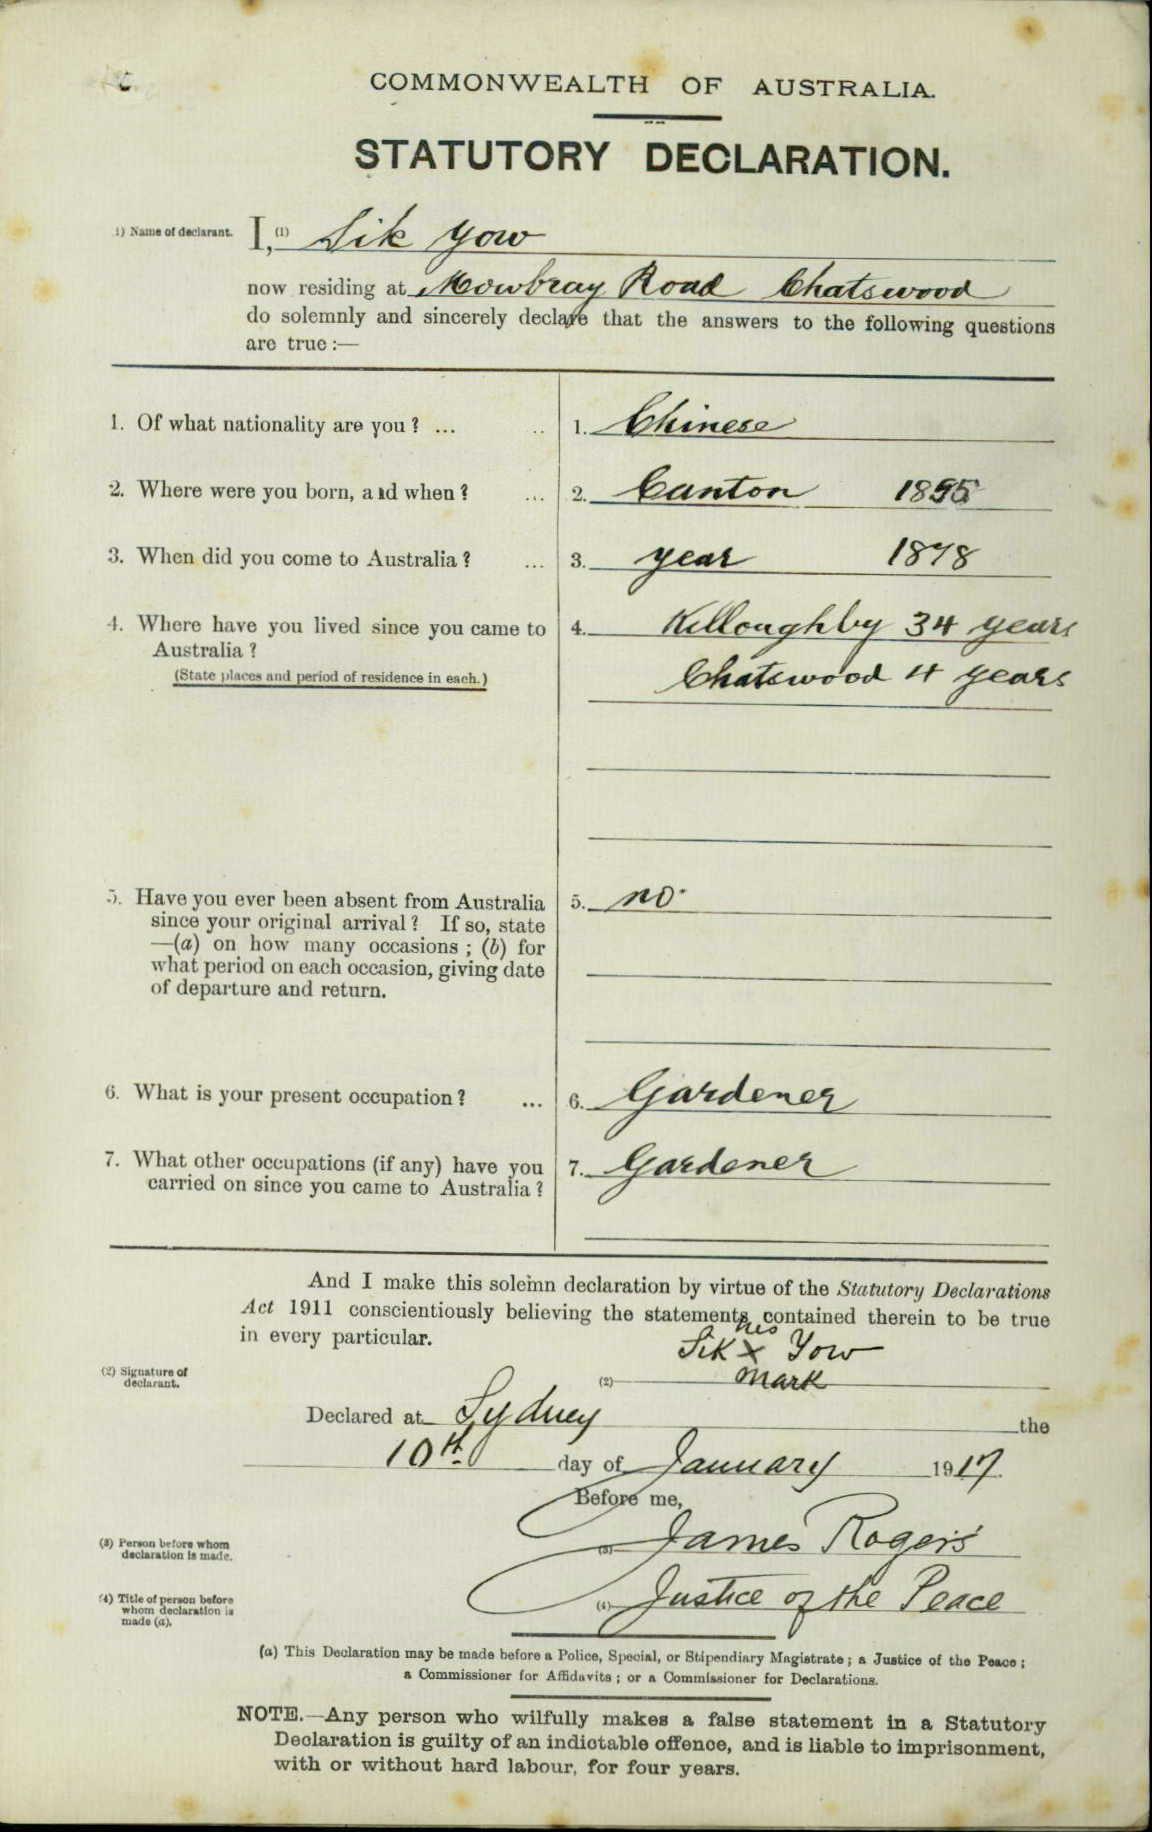 COMMONWEALTH OF AUSTRALIA.
STATUTORY DECLARATION.
1) Name of declarant. I, (1) Sik Yow
now residing at Mowbray Road Chatswood
do solemnly and sincerely declare that the answers to the following questions
are true :—
1. Of what nationality are you ? ... .. 1. Chinese
2. Where were you born, and when ? ... 2. Canton
3. When did you come to Australia ? ... 3. year 1878
4. Where have you lived since you came to 4. Killoughby 34 years
Australia ?
(State places and period of residence in each.) Chatswood 4 years
5. Have you ever been absent from Australia 5. no.
since your original arrival ? If so, state
—(a) on how many occasions ; (b) for
what period on each occasion, giving date
of departure and return.
6. What is your present occupation ? ... 6. Gardener
7. What other occupations (if any) have you 7. Gardener
carried on since you came to Australia ?
And I make this solemn declaration by virtue of the Statutory Declarations
Act 1911 conscientiously believing the statements contained therein to be true
in every particular.
his
Sik X Yow
(2) Signature of
declarant. (2) mark
Declared at Sydney the
10th day of January 1917
Before me,
(3) Person before whom
declaration is made. (3) James Rogers
(4) Title of person before
whom declaration is
made (a). (4) Justice of the Peace
(a) This Declaration may be made before a Police, Special, or Stipendiary Magistrate ; a Justice of the Peace ;
a Commissioner for Affidavits ; or a Commissioner for Declarations.
NOTE.—Any person who wilfully makes a false statement in a Statutory
Declaration is guilty of an indictable offence, and is liable to imprisonment,
with or without hard labour, for four years.